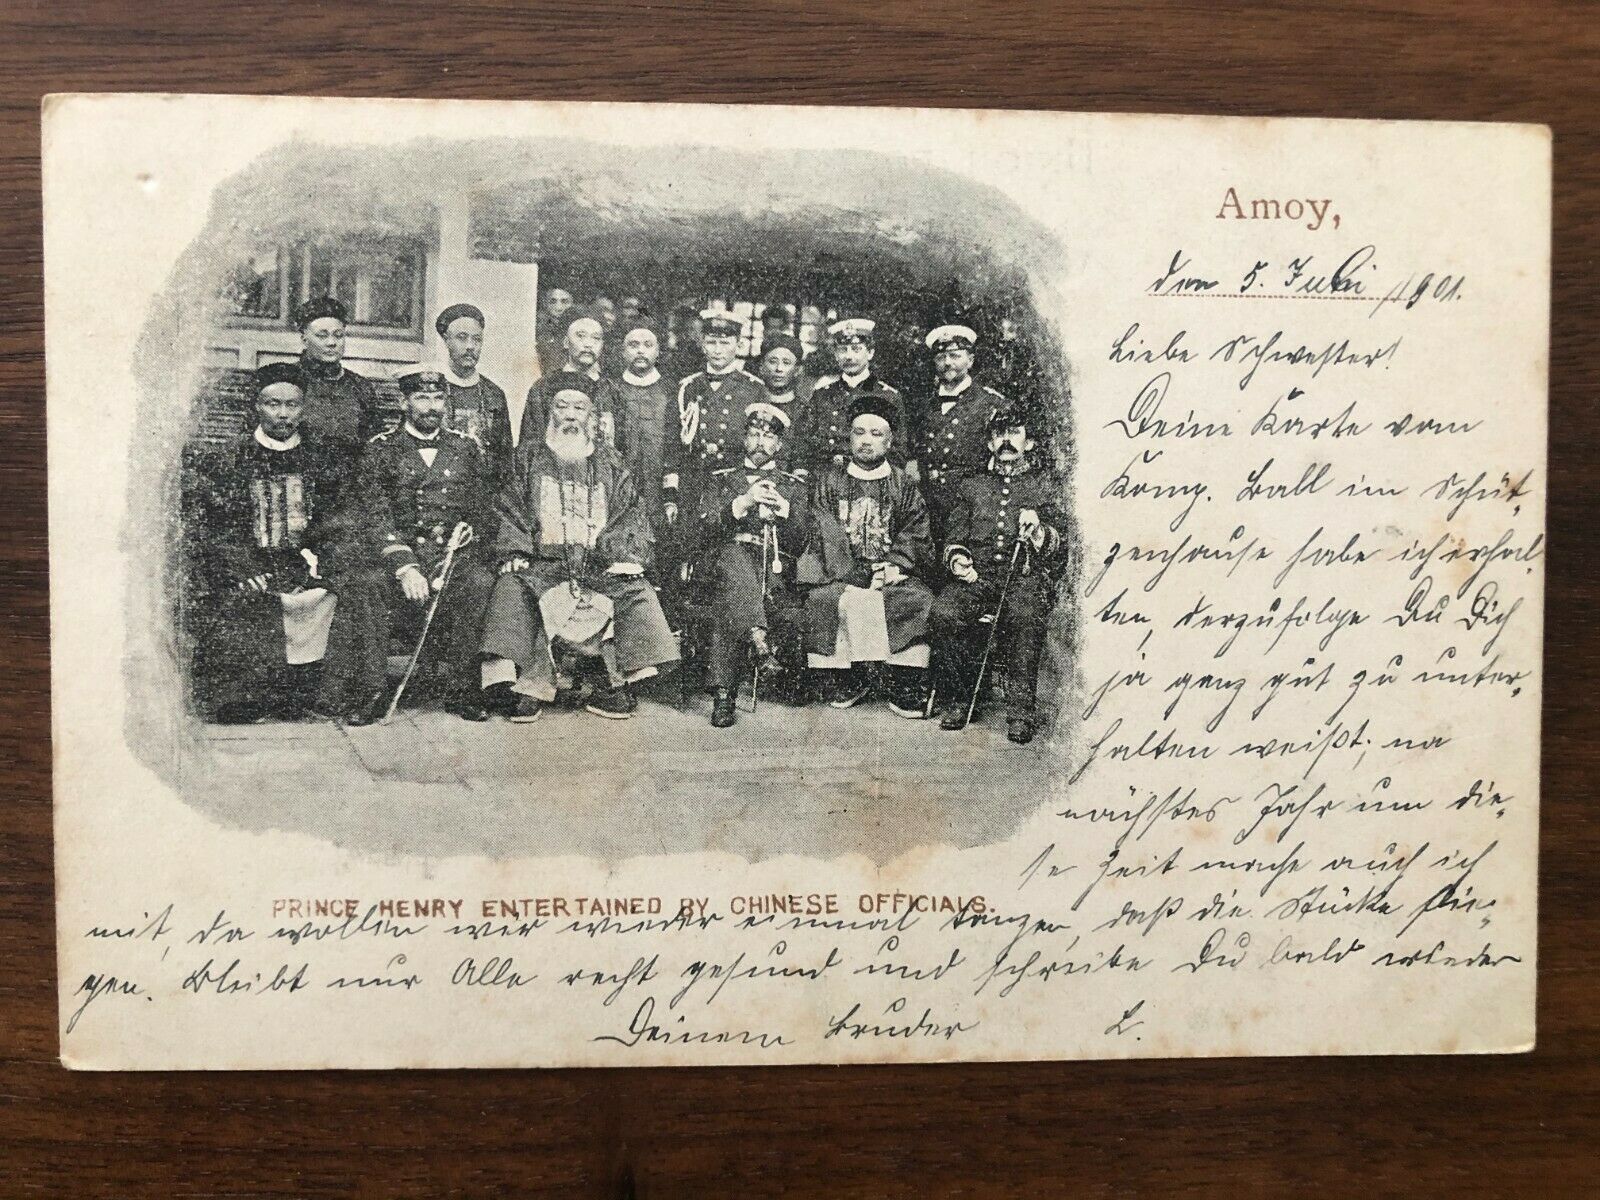 Amoy,
den 5. Juli 1901.
Liebe Schwester!
Deine Karte vom
Komp. Ball im Schüt-
zenhause habe ich erhal-
ten, derzufolge Du Dich
ja ganz gut zu unter-
halten weißt; na
nächstes Jahr um die-
se Zeit mache auch ich
PRINCE HENRY ENTERTAINED BY CHINESE OFFICIALS.
mit, da wollen wir wieder einmal tanzen, daß die Stücke flie-
gen. Bleibt nur Alle recht gesund und schreibe Du bald wieder
Deinem Bruder L.